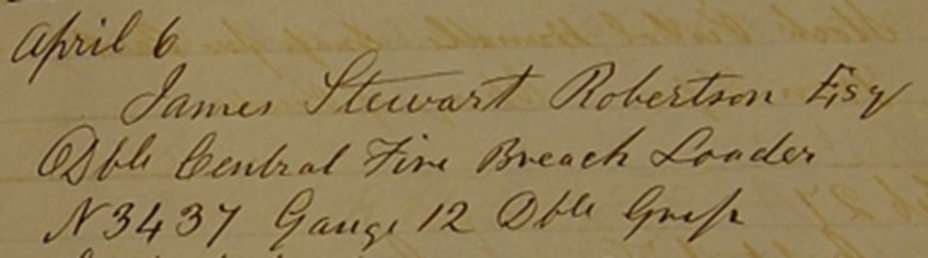 April 6
James Stewart Robertson Esq
Dble Central Fire Breach Loader
N 3437 Gauge 12 Dble Grip